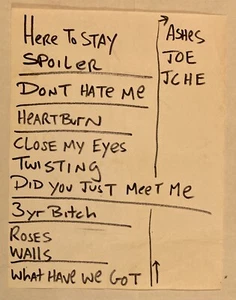 HERE TO STAY
SPOILER
DONT HATE ME
HEARTBURN
CLOSE MY EYES
TWISTING
DID YOU JUST MEET ME
3yr Bitch
ROSES
WALLS
WHAT HAVE WE GOT
ASHES
JOE
JCHE